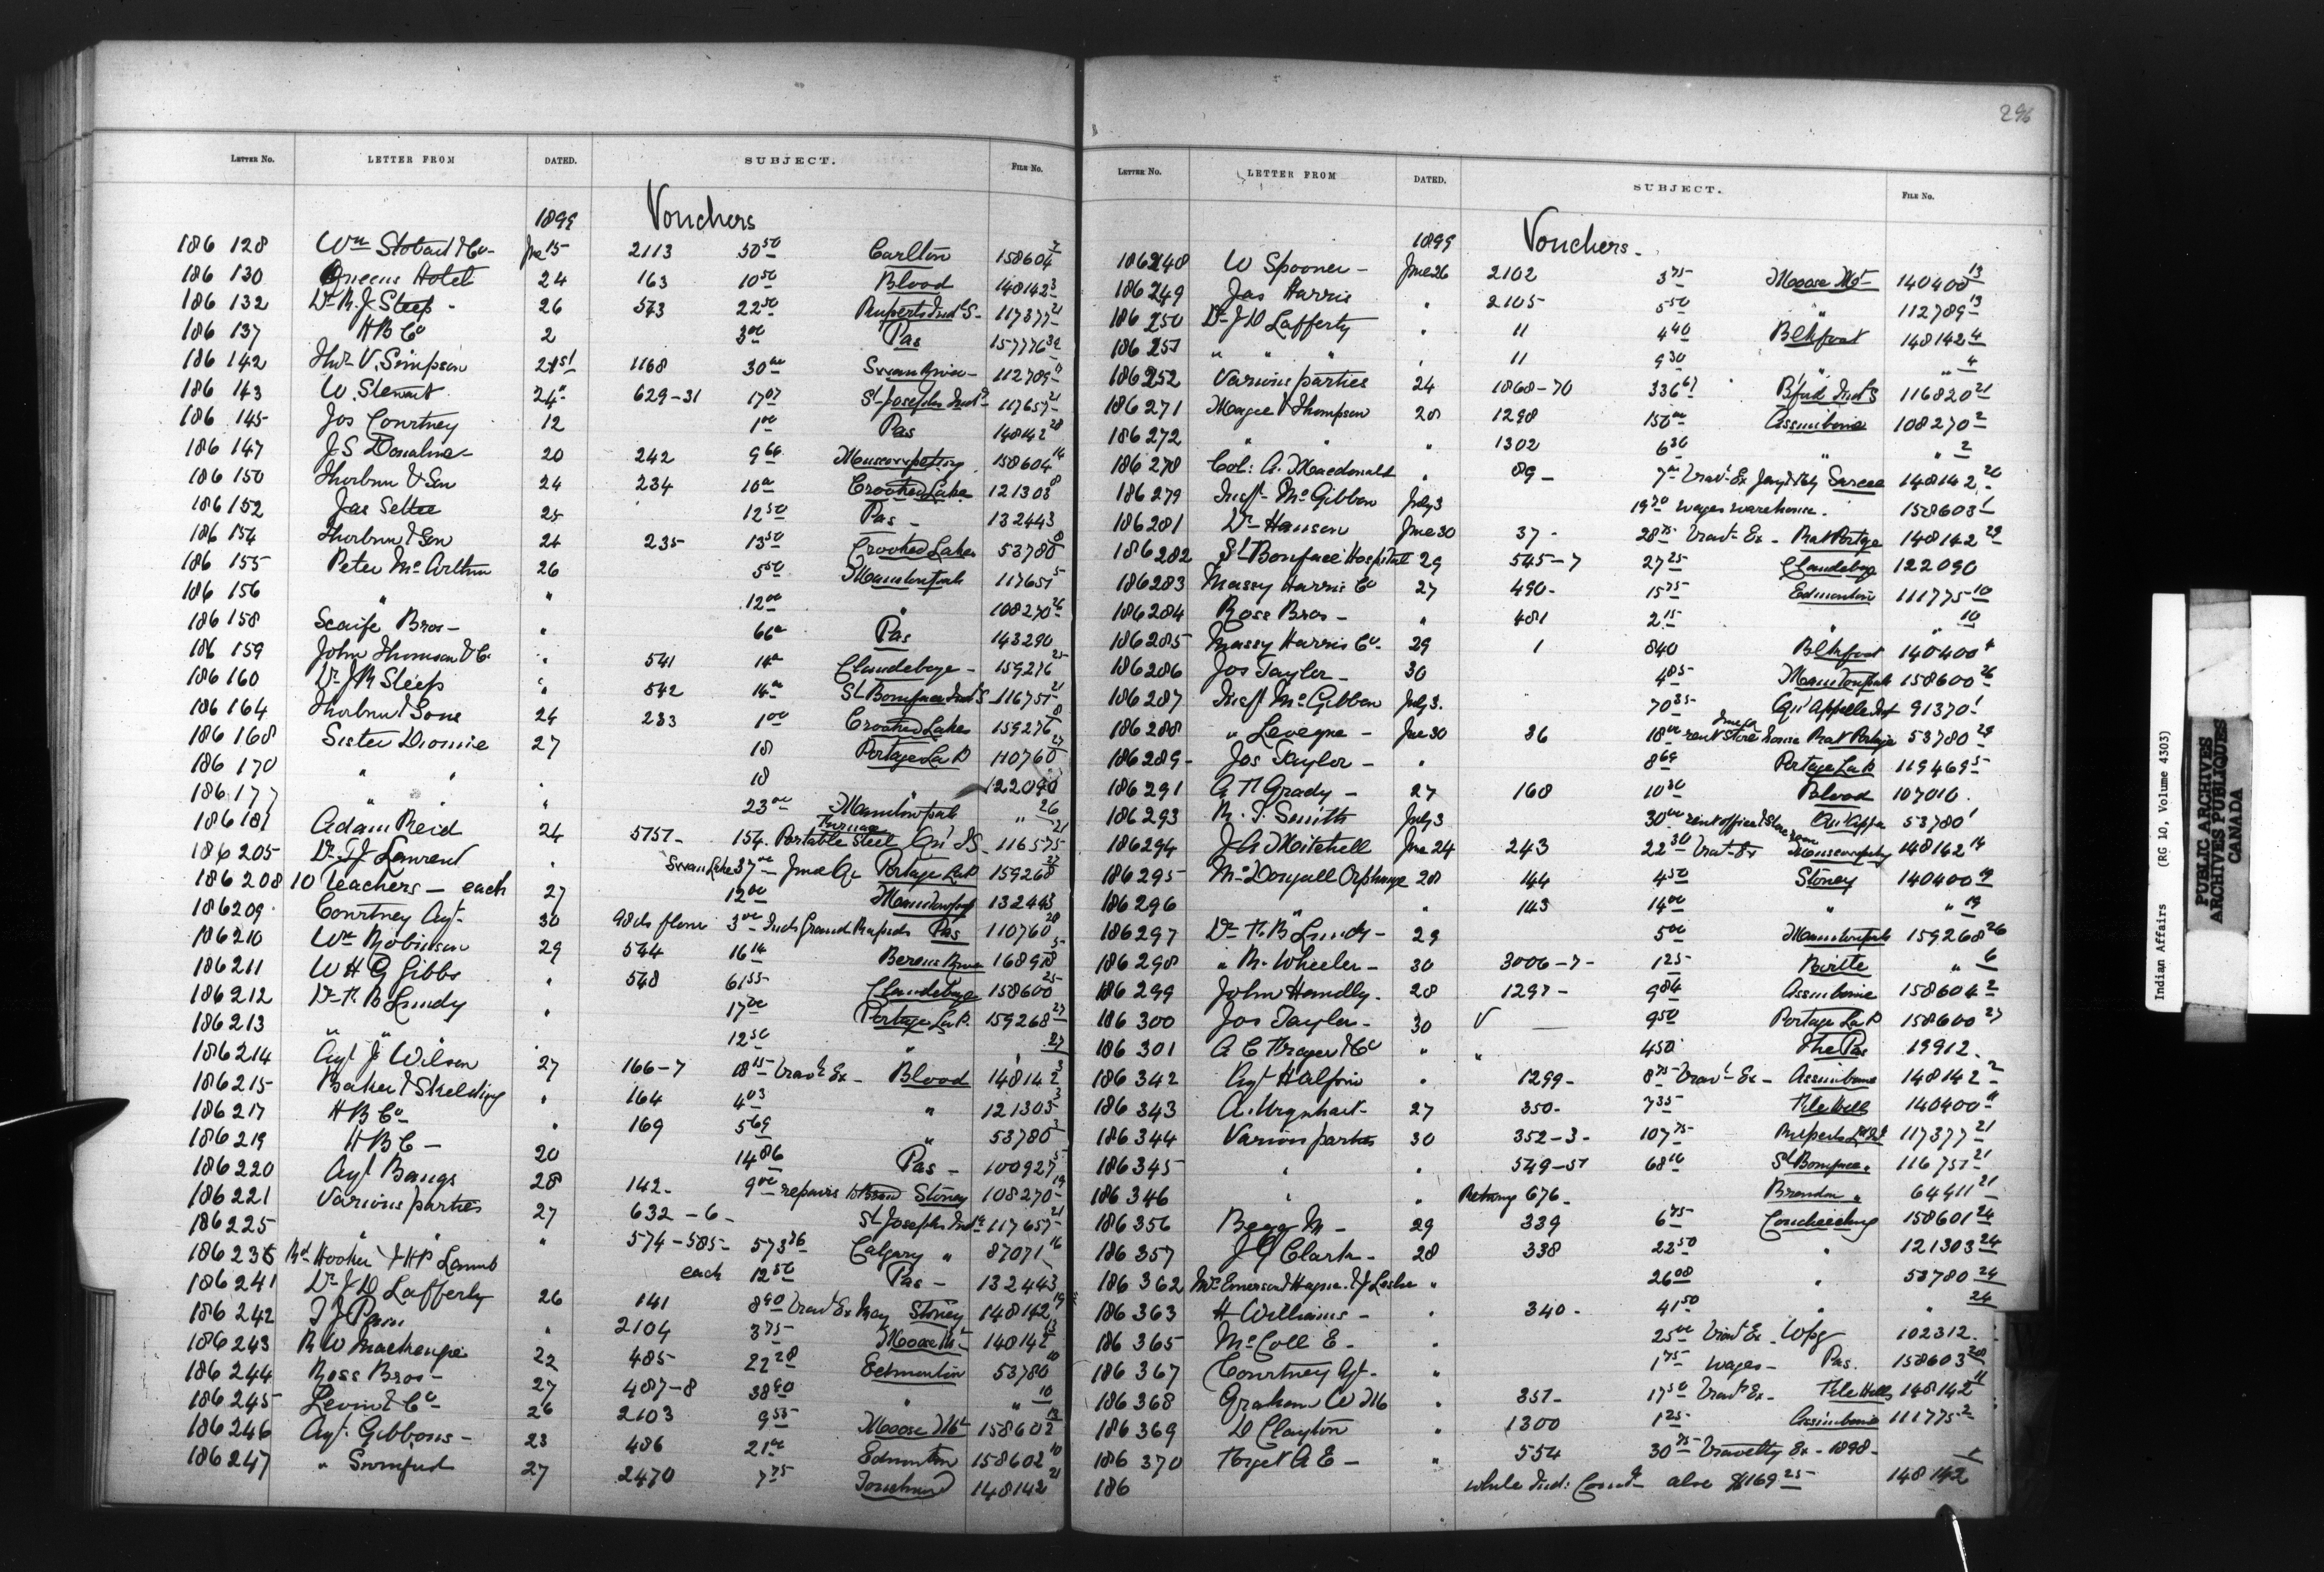 LETTER No. LETTER FROM DATED. SUBJECT. FILE No.
1899 Vouchers
186 128 Wm Stobart & Co - Jne 15 2113 50 50 Carlton 158604 7
186 130 Queens Hotel 24 163 10 50 Blood 148142 3
186 132 Dr R. J. Steep - 26 543 22 50 Ruperts Ind S - 117377 21
186 137 H B Co 2 3 00 Pas 157776 32
186 142 Thos V. Simpson 21st 1168 30 00 Swan River - 112789
186 143 W. Stewart 24 629-31 17 07 St Josephs Ind S 117657 21
186 145 Jos Courtney 12 1 00 Pas 148142 28
186 147 J S Donaline 20 242 9 66 Muscowpetung 158604 14
186 150 Thorburn & Son 24 234 10 00 Crooked Lake 121303 8
186 152 Jas Settee 25 12 50 Pas - 132443
186 154 Thorburn & Son 24 235 13 50 Crooked Lakes 53780 8
186 155 Peter McArthur 26 5 50 Manitowpah 117651 5
186 156 " " 12 00 " 108270 26
186 158 Scaife Bros - " 66 00 Pas 143290
186 159 John Thomson & Co " 541 14 00 Clandeboye - 159276 25
186 160 Dr J R Steep " 542 14 00 St Boniface Ind S 116751 21
186 164 Thorburn & Sons 24 233 1 00 Crooked Lakes 159276 8
186 168 Sister Diomie 27 18 Portage La P 110760 27
186 170 " " " 18 122090
186 177 " " 23 00 Manitowpah " 26
186 181 Adam Reid 24 5757 - 154. Portable Steel Furnace Qu' I S - 116575 21
186 205 Dr T J Lawrent " Swan Lake 37 00 - Jne Qr Portage La P. 159268 27
186 208 10 teachers - each 27 12 00 Manitowpah 132443
186209 Courtney Agt - 30 98 lbs flour 3 00 - Inds Grand Rapids Pas 110760 28
186 210 Wm Robinson 29 544 16 16 Berens River 168978 5
186 211 W H G Gibbs " 548 61 55 Clandeboye 158600 25
186 212 Dr T. B Lundy " 17 00 Portage La P. 159268 27
186 213 " " " 12 50 " 27
186 214 Agt J Wilson 27 166-7 18 15 - Travg Ex - Blood 148142 3
186 215 Baker & Skelding " 164 4 03 " 121303 3
186 217 H B Co " 169 5 69 " 53780 3
186 219 H B C - 20 14 86 Pas - 100927 5
186 220 Agt Bangs 28 142 - 9 00 - repairs to Stoney 108270 19
186 221 Various parties 27 632 - 6 - St Josephs Ind S 117657 21
186 225 " " " 574-585 - 573 36 Calgary " 87071 16
186 236 Rd Hooker & H P Lamb each 12 50 Pas - 132443
186 241 Dr J D Lafferty 26 141 8 90 Travg Ex May Stoney 148142 19
186 242 " 2104 3 75 Moose Mt 148142 13
186 243 R W Mackenzie 22 485 22 28 Edmonton 53780 10
186 244 Ross Bros - 27 487-8 38 90 " " 10
186 245 Levin & Co 26 2103 9 55 Moose Mt 158602 13
186 246 Agt Gibbons - 23 486 21 00 Edmonton 158602 10
186 247 " Swinford 27 2470 7 75 Touchwood 148142 21
296
LETTER No. LETTER FROM DATED. SUBJECT. FILE No.
1899 Vouchers -
186248 W Spooner - Jne 26 2102 3 75 Moose Mt - 140400 13
186249 Jas Harris " 2105 5 50 " 112789 13
186 250 Dr J D Lafferty " 11 4 40 Blkfoot 148142 4
186 251 " " " " 11 9 30 " " 4
186252 Various parties 24 1868-70 336 67 B'ford Ind S 116820 21
186 271 Magee & Thompson 28 1298 150 00 Assiniboine 108270 2
186 272 " " " 1302 6 30 " " 2
186 278 Col: A. Macdonald " 89 - 7 00 Travg Ex Sarcee 148142 20
186 279 Insp McGibbon July 3 19 70 wages warehouse. 158603 1
186 281 Dr Hanson Jne 30 37 - 28 75 Travg Ex - Rat Portge 148142 29
186 282 St Boniface Hospital 29 545-7 27 25 Clandeboy 122090
186283 Massy Harris Co 27 490 - 15 75 Edmonton 111775 10
186284 Ross Bros - " 481 2 15 " " 10
186285 Massy Harris Co - 29 1 8 40 Blkfoot 140400 4
186286 Jos Taylor - 30 4 85 Manitowpah 158600 26
186 287 Insp McGibbon July 3. 70 35 - Qu'Appelle Ind 91370 1
186 288 " Leveque - Jne 30 36 18 00 rent store house Rat Portage 53780 29
186 289 - Jos Taylor - " 8 69 Portage La P 119469 5
186 291 G T Grady - 27 168 10 30 Blood 107016.
186 293 R. T. Smith July 3 30 00 rent office & Store room Qu'App 53780 1
186294 J A Mitchell Jne 24 243 22 30 Travg Ex Muscowpetg 148142 14
186 295 McDougall Orphange 28 144 4 50 Stoney 140400 19
186 296 " " 143 14 00 " " 19
186 297 Dr T. B Lundy - 29 5 00 Manitowpah 159268 26
186 298 " R. Wheeler - 30 3006-7 - 1 25 Birtle " 6
186 299 John Handly. 28 1297 - 9 84 Assiniboine 158604 2
186 300 Jos Taylor - 30 9 50 Portage La P 158600 27
186 301 " " 4 50 The Pas 19912.
186 342 Agt Halpin " 1299 - 8 75 Travg Ex - Assiniboine 148142 2
186 343 A. Urquhart - 27 350 - 7 35 File Hills 140400 11
186 344 Various parties 30 352-3 - 107 75 Ruperts Ld Ind 117377 21
186 345 " " 549-51 68 16 St Boniface " 116751 21
186 346 " " 676 - Brandon " 64911 21
186 356 Begg M - 29 339 6 75 Coucheeching 158601 24
186 357 J G Clark - 28 338 22 50 " 121303 24
186 362 " 26 08 " 53780 24
186 363 H Williams - " 340 - 41 50 " " 24
186 365 McColl E - " 25 00 Travg Ex. Wpg 102312.
186 367 Courtney Agt - " 1 75 wages - Pas. 158603 28
186 368 Graham W M " 351 - 17 50 Travg Ex - File Hills 148142 11
186 369 D Clayton " 1300 1 25 Assiniboine 111775 2
186 370 Forget A E - " 554 30 75 Travellg Ex - 1898 -
186 while Ind: Comr also $169 25 148142 1
Indian Affairs (RG 10, Volume 4303)
PUBLIC ARCHIVES
ARCHIVES PUBLIQUES
CANADA